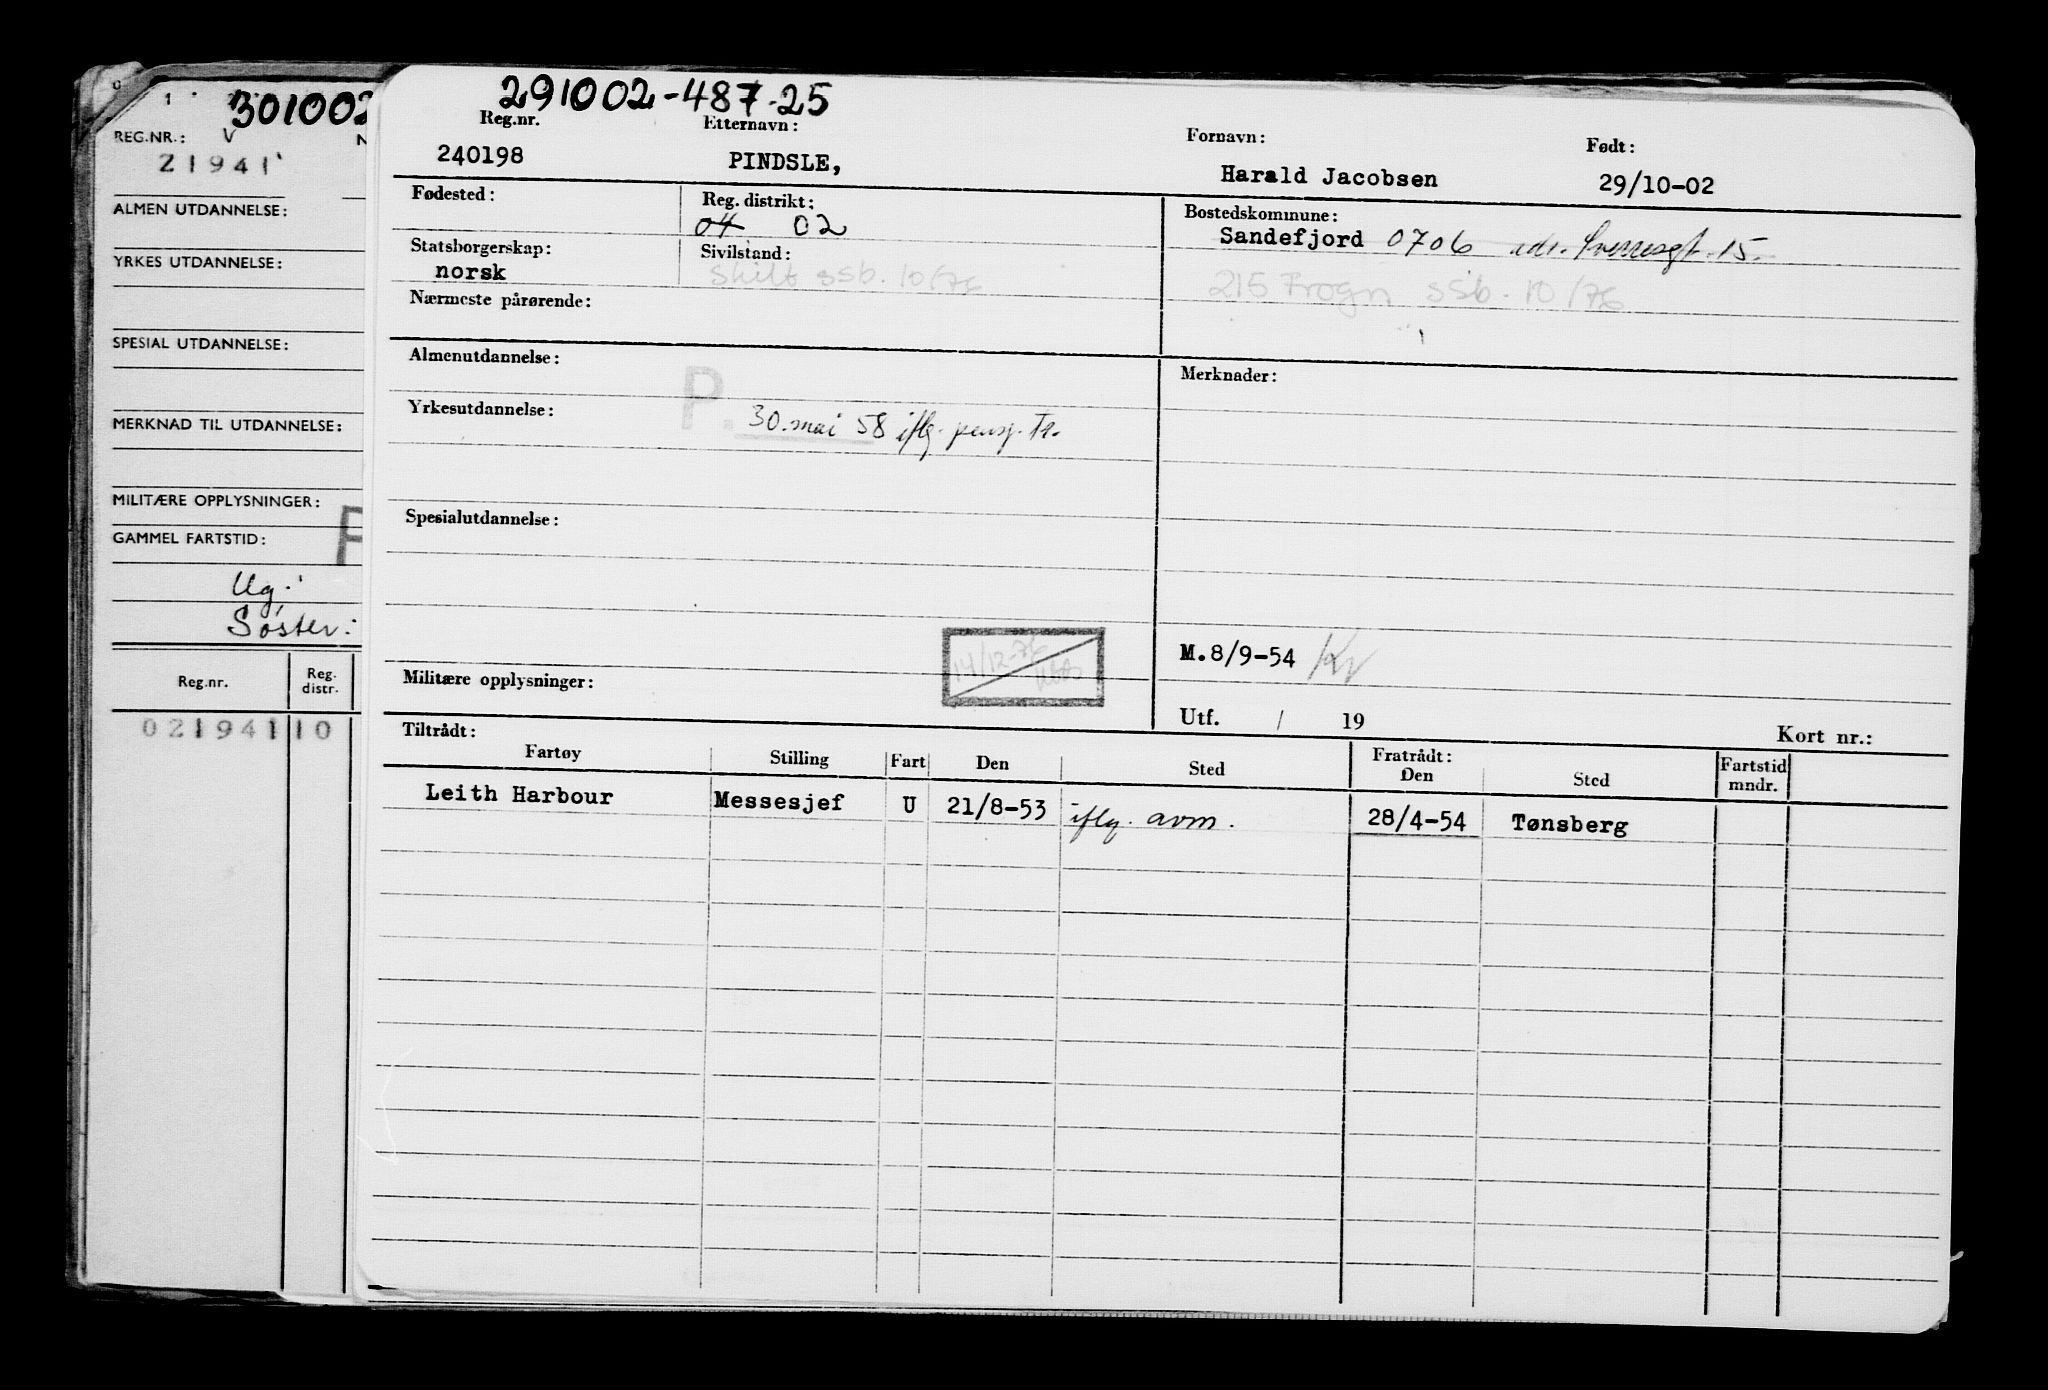 301002
REG.NR.: V N
21941
ALMEN UTDANNELSE:
YRKES UTDANNELSE:
SPESIAL UTDANNELSE:
MERKNAD TIL UTDANNELSE:
MILITÆRE OPPLYSNINGER:
GAMMEL FARTSTID:
Ug.
Søster:
Reg.nr. Reg. distr.
021941 10
291002-487-25
Reg.nr. Etternavn: Fornavn: Født:
240198 PINDSLE, Harald Jacobsen 29/10-02
Fødested: Reg. distrikt: Bostedskommune:
04 02 Sandefjord 0706 adr. Sverresgt. 15.
Statsborgerskap: Sivilstand:
norsk skilt ssb. 10/76 215 Frogn ssb. 10/76
Nærmeste pårørende:
Almenutdannelse: Merknader:
P.
Yrkesutdannelse: 30. mai 58 iflg. pensj. Tr.
Spesialutdannelse:
M.8/9-54 Kv
14/12-76
Militære opplysninger:
Utf. / 19 Kort nr.:
Tiltrådt: Fratrådt:
Fartøy Stilling Fart Den Sted Den Sted Fartstid mndr.
Leith Harbour Messesjef U 21/8-53 iflg. avm. 28/4-54 Tønsberg